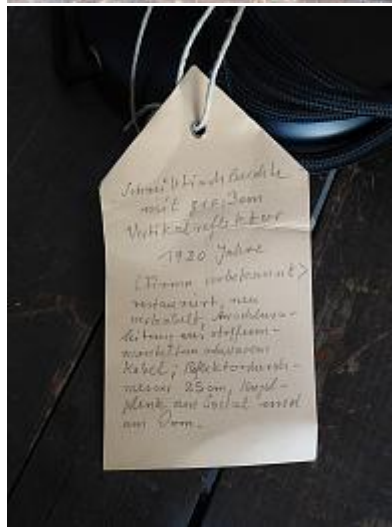 Schreibtischleuchte
mit großem
Vertikalreflektor
1920 Jahre
(Firma unbekannt)
restauriert, neu
verkabelt, Anschluss-
leitung aus stoffum-
manteltem schwarzem
Kabel; Reflektordurch-
messer 25cm, Kugel-
gelenk am Sockel und
am Dom.